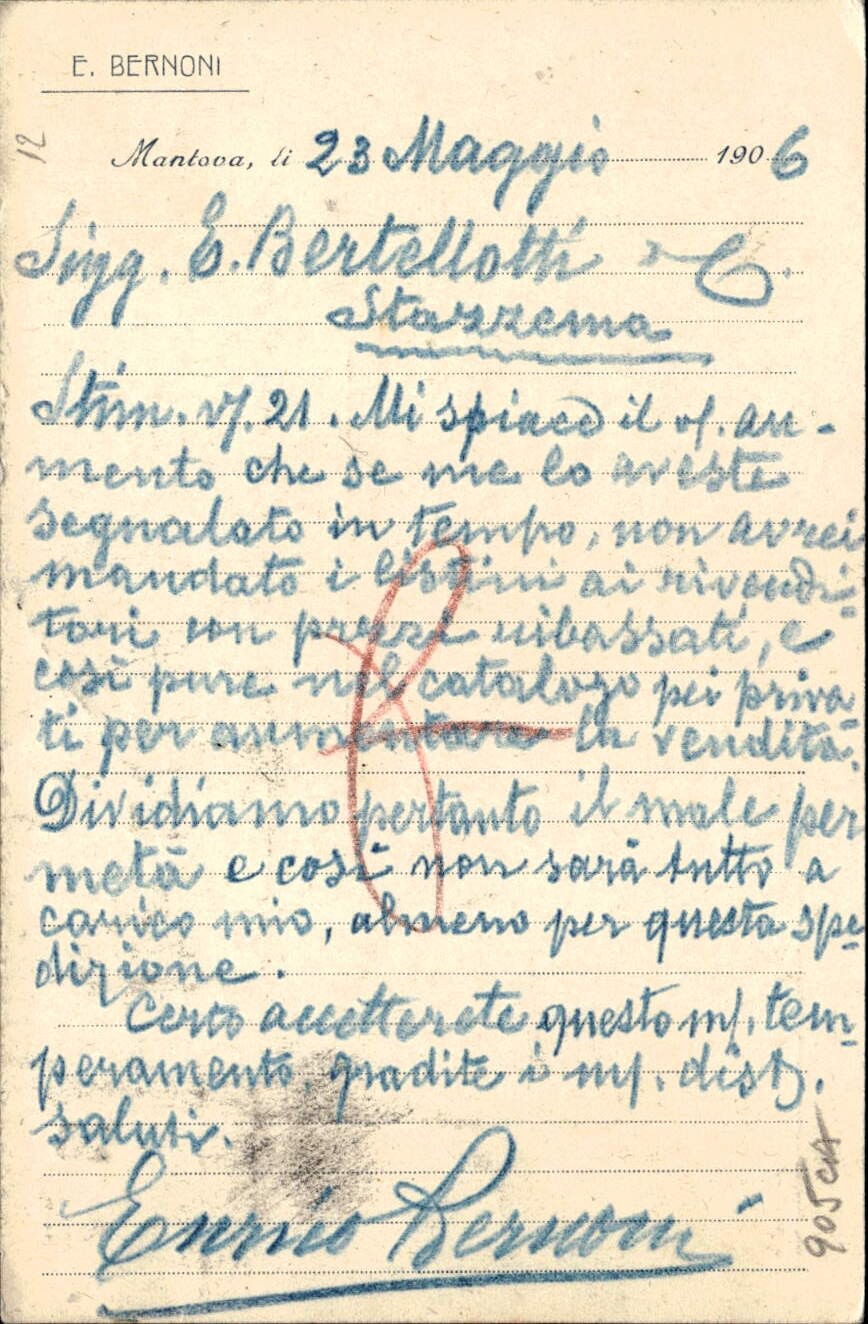 E. BERNONI
12
Mantova, li 23 Maggio 1906
Sigg. E. Bertellotti e C.
Stazzema
Stim. v/. 21. Mi spiace il v/. au-
mento che se me lo aveste
segnalato in tempo, non avrei
mandato i listini ai rivendi-
tori con prezzi ribassati, e
così pure nel catalogo pei priva-
ti per aumentare la vendita.
Dividiamo pertanto il male per
metà e così non sarà tutto a
carico mio, almeno per questa spe-
dizione.
Certo accetterete questo m/. tem-
peramento, gradite i m/. dist.
saluti.
Bernoni